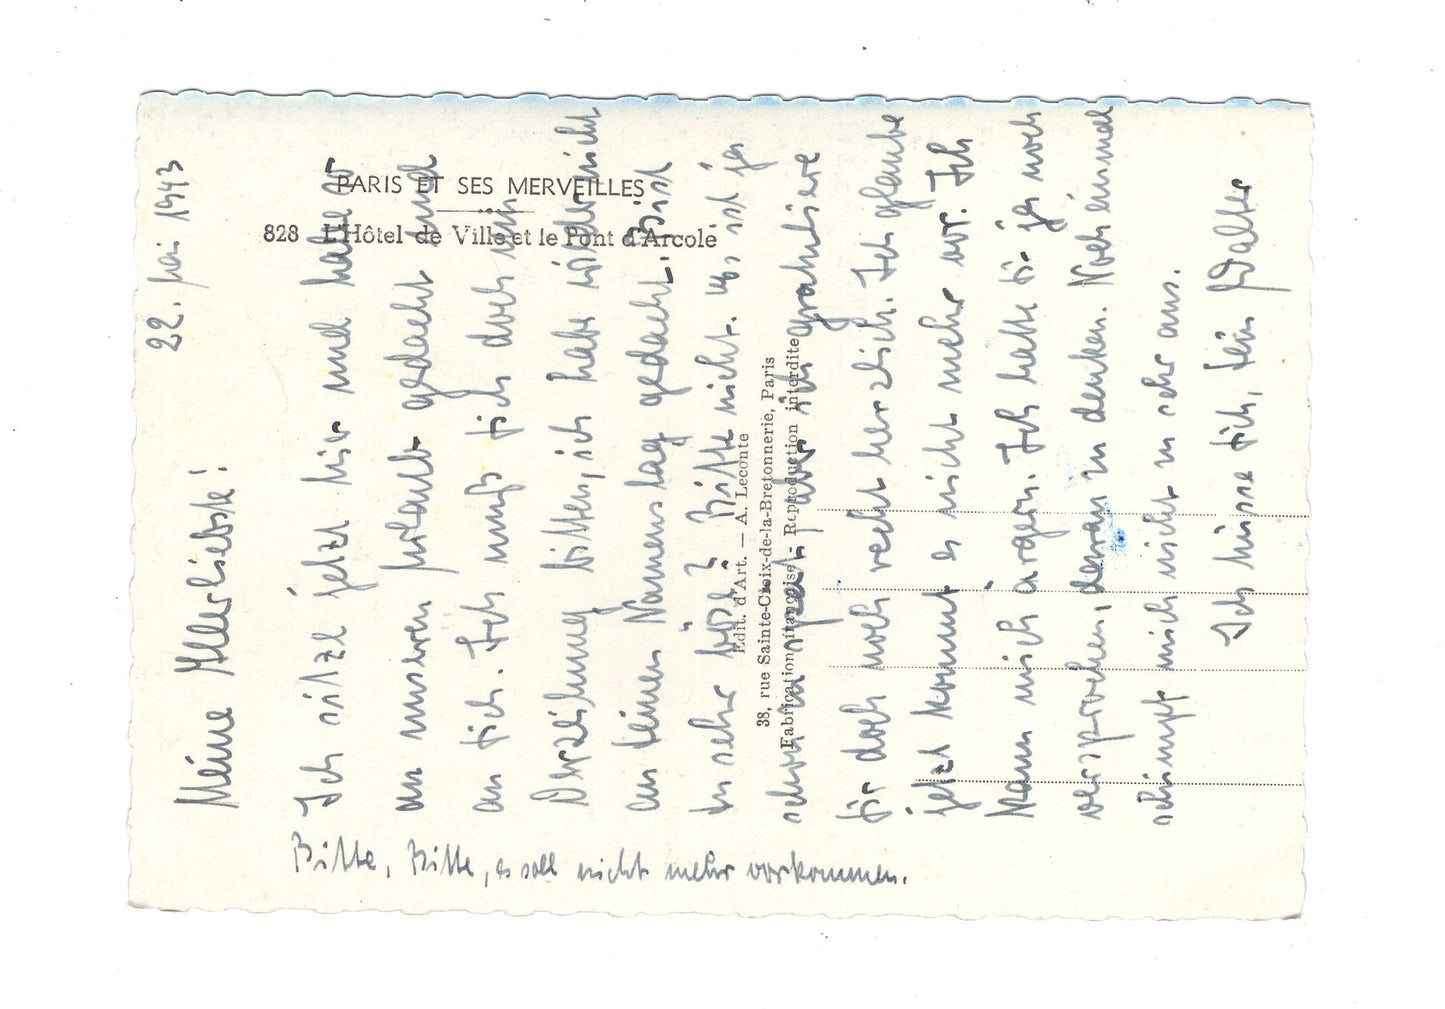 PARIS ET SES MERVEILLES
828 L'Hôtel de Ville et le Pont d'Arcole
Edit. d'Art. — A. Leconte
38, rue Sainte-Croix-de-la-Bretonnerie, Paris
Fabrication française - Reproduction interdite
22. Juni 1943
Meine Allerliebste!
Ich sitze jetzt hier und habe so
an unseren Urlaub gedacht und
an Dich. Ich muß Dich doch um
Verzeihung bitten, ich habe wieder nicht
an Deinen Namenstag gedacht. Bist
Du sehr böse? Bitte nicht. Es ist ja
schon zu spät, aber ich gratuliere
Dir doch noch recht herzlich. Ich glaube
jetzt kommt es nicht mehr vor. Ich
kann mich ärgern. Ich hatte Dir ja noch
versprochen, daran zu denken. Noch einmal
schimpf mich nicht zu sehr aus.
Ich küsse Dich, Dein Walter
Bitte, Bitte, es soll nicht mehr vorkommen.